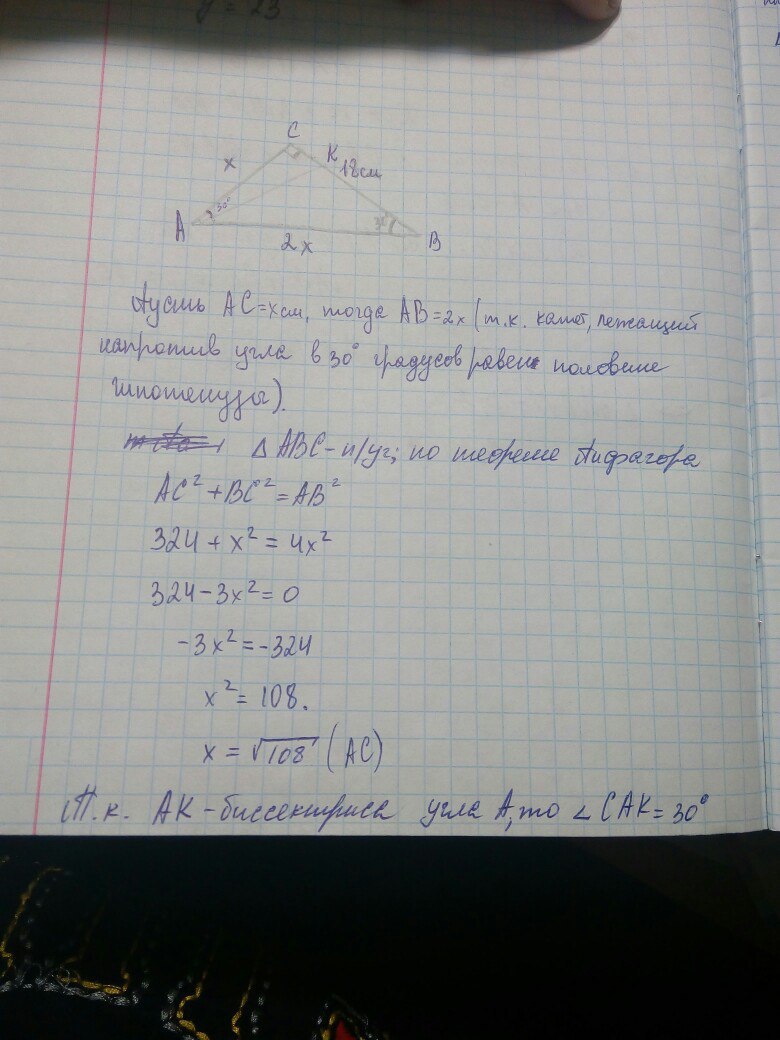 y = 23
C
x
K
18см
30°
A
2x
B
Пусть AC=xсм, тогда AB=2x (т.к. катет, лежащий
напротив угла в 30° градусов равен половине
гипотенузы).
△ ABC - п/уг; по теореме Пифагора
AC² + BC² = AB²
324 + x² = 4x²
324 - 3x² = 0
-3x² = -324
x² = 108.
x = √108 (AC)
Т.к. AK - биссектриса угла A, то ∠ CAK = 30°